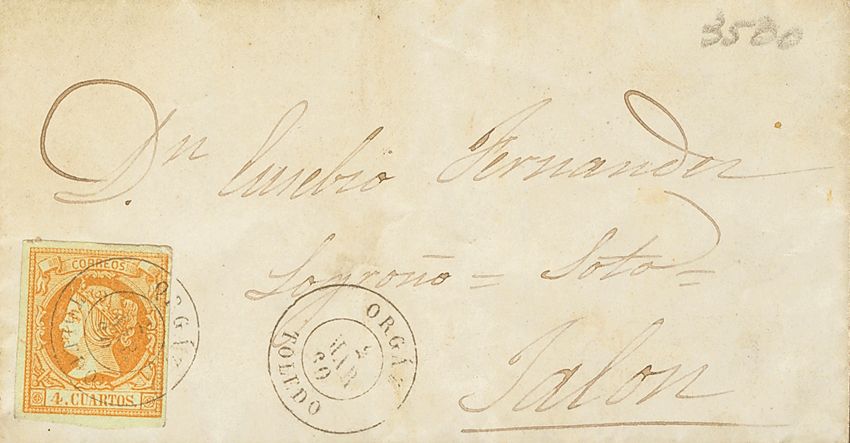 3500
Dn Eusebio Fernandez
Logroño = Soto =
Jalon
CORREOS
4. CUARTOS.
ORGÁZ
ORGÁZ
2
MAR
60
TOLEDO